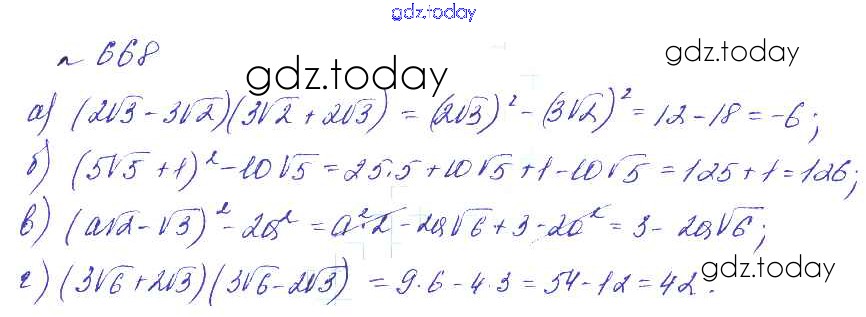 gdz.today
№ 668
gdz.today
gdz.today
а) (2√3 - 3√2)(3√2 + 2√3) = (2√3)² - (3√2)² = 12 - 18 = -6;
б) (5√5 + 1)² - 10√5 = 25·5 + 10√5 + 1 - 10√5 = 125 + 1 = 126;
в) (a√2 - √3)² - 2a² = a²·2 - 2a√6 + 3 - 2a² = 3 - 2a√6;
г) (3√6 + 2√3)(3√6 - 2√3) = 9·6 - 4·3 = 54 - 12 = 42.
gdz.today
gdz.today